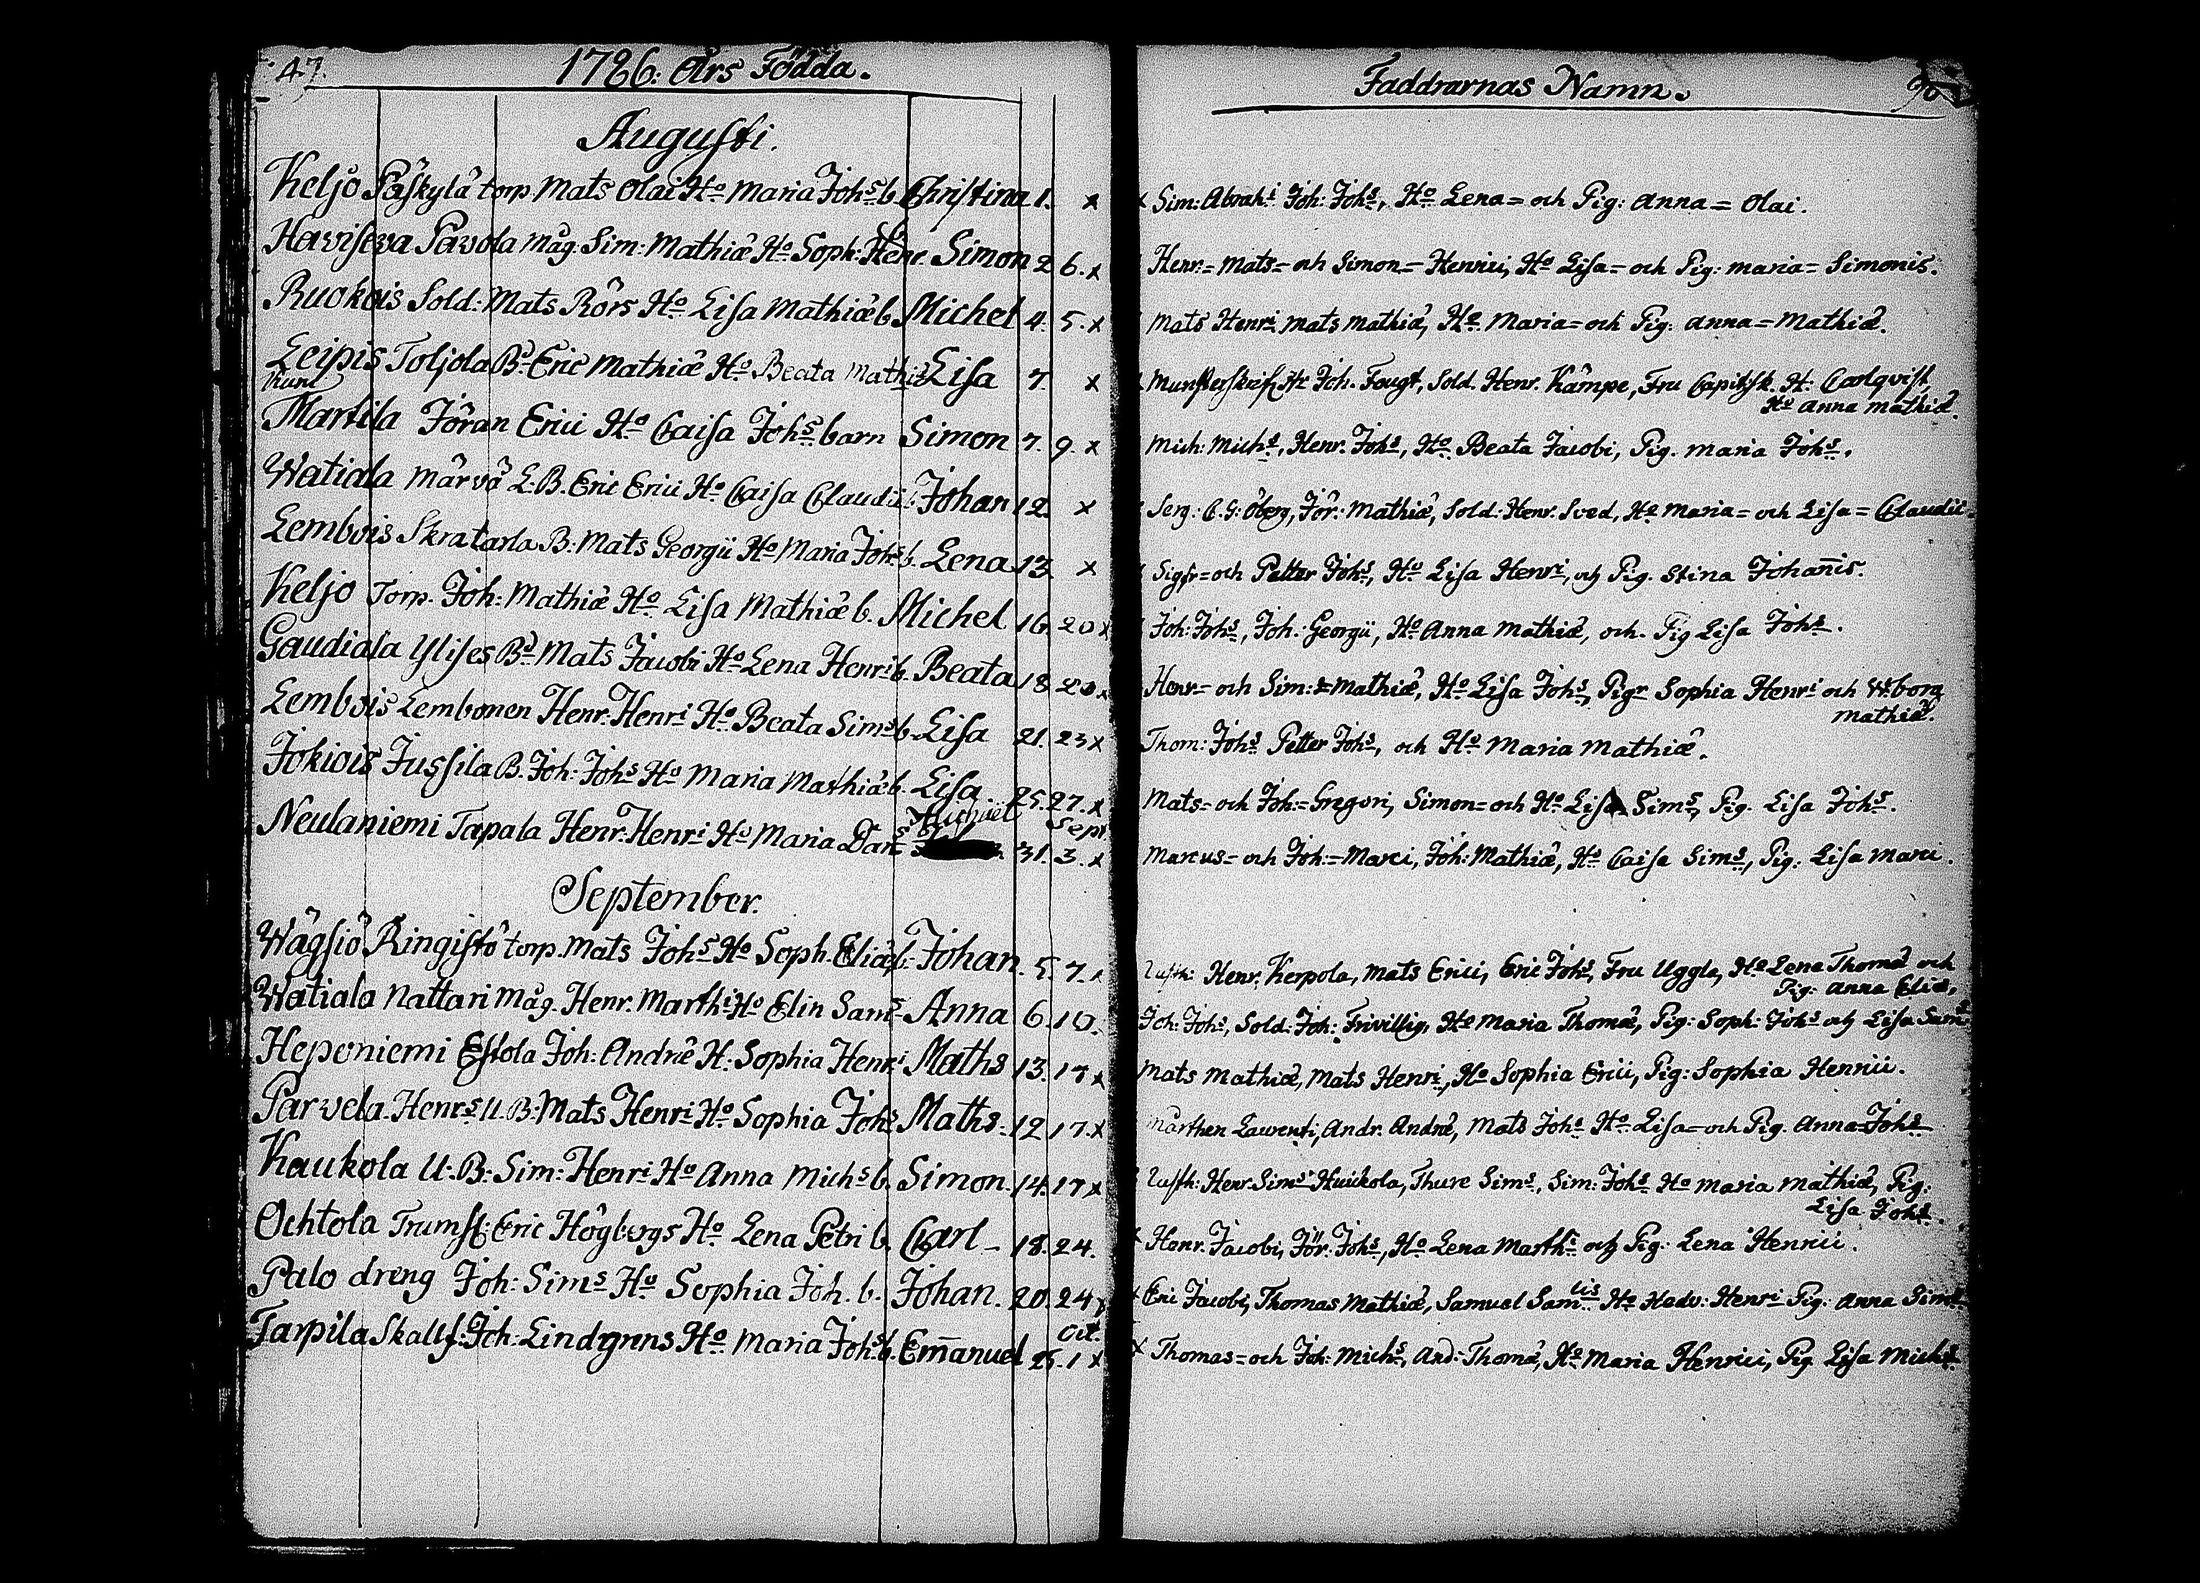 47.
1786: Års Födda.
Augusti.
Keljo Päskylä torp. Mats Olai Ho Maria Johs b. Christina 1. x
Haviseva Pavola Måg: Sim: Mathiæ Ho Soph: Hene Simon 2 6. x
Ruokois Sold: Mats Rörs Ho Lisa Mathiæ b. Michel 4. 5. x
Leipis Toljola Bd Eric Mathiæ Ho Beata Mathiæ Lisa 7. x
Martila Jöran Erici Ho Caisa Johs barn Simon 7. 9. x
Watiala Mårvä L. B. Eric Erici Ho Caisa Claudii b. Johan 12. x
Lembois Skratarla B: Mats Georgii Ho Maria Johs b. Lena 13. x
Keljo Torp. Joh: Mathiæ Ho Lisa Mathiæ b. Michel 16. 20 x
Gaudiala Ylises Bd Mats Jacobi Ho Lena Henri b. Beata 18 20 x
Lembois Lembonen Henr. Henri Ho Beata Sims b. Lisa 21. 23 x
Jokiois Jussila B. Joh: Johs Ho Maria Mathiæ b. Lisa 25. 27. x
Neulaniemi Tapala Henr. Henri Ho Maria Dans Michael 31. Sept 3. x
September.
Wägsiö Ringistö torp. Mats Johs Ho Soph. Eliæ b. Johan. 5. 7. x
Watiala Nattari Måg. Henr. Marthi Ho Elin Sams Anna 6. 10.
Heponiemi Estola Joh: Andræ H: Sophia Henri Maths 13. 17 x
Parvela Henrs U. B: Mats Henri Ho Sophia Johs Maths 12 17. x
Kaukola U: B: Sim: Henri Ho Anna Michs b. Simon 14. 17 x
Ochtola Trumsl: Eric Högbergs Ho Lena Petri b. Carl 18. 24.
Palo dreng Joh: Sims Ho Sophia Joh. b. Johan. 20. 24 x
Tarpila Skallf: Joh: Lindgrens Ho Maria Johs b. Emanuel 25. Oct. 1 x
Faddrarnas Namn.
x Sim: Abrahi Joh: Johs, Ho Lena = och Pig: Anna = Olai.
Henr. = Mats = och Simon = Henrici, Ho Lisa = och Pig: Maria = Simonis.
Mats Henri Mats Mathiæ, Ho Maria = och Pig: Anna = Mathiæ.
Joh. Fougt, Sold. Henr. Kämpe, Fru H: Carlqvist,
Ho Anna Mathiæ.
Mich: Michs, Henr. Johs, Ho Beata Jacobi, Pig. Maria Johs.
Serg: C. G: Öberg, Jör: Mathiæ, Sold: Henr. Sved, Ho Maria = och Lisa = Claudii
Sigfr = och Petter Johs, Ho Lisa Henri, och Pig. Stina Johañis.
Joh: Johs, Joh: Georgii, Ho Anna Mathiæ, och Pig Lisa Johs.
Henr = och Sim: = Mathiæ, Ho Lisa Johs, Pigr Sophia Henri och Wborg
Mathiæ.
Thom: Johs Petter Johs, och Ho Maria Mathiæ.
Mats = och Joh: = Gregori, Simon = och Ho Lisa Sims, Pig. Lisa Johs.
Marcus = och Joh: = Marci, Joh: Mathiæ, Ho Caisa Sims, Pig: Lisa Marci.
Henr. Kerpola, Mats Erici, Eric Johs, Fru Uggla, Ho Lena Thomæ och
Pig: Anna Eliæ,
Joh: Johs, Sold: Joh: Frivillig, Ho Maria Thomæ, Pig: Soph: Johs och Lisa Sams
Mats Mathiæ, Mats Henri, Ho Sophia Erici, Pig: Sophia Henrici.
Mårthen Laurenti, Andr. Andræ, Mats Johs Ho Lisa = och Pig. Anna = Johs
Henr. Sims Huikola, Thure Sims, Sim: Johs Ho Maria Mathiæ, Pig:
Lisa Johs.
x Henr. Jacobi, Jör. Johs, Ho Lena Marthi och Pig: Lena Henrici.
x Eric Jacobi, Thomas Mathiæ, Samuel Samlis Ho Hedv: Henri Pig: Anna Sims
x Thomas = och Joh: Michs, And: Thomæ, Ho Maria Henrici, Pig. Lisa Michs